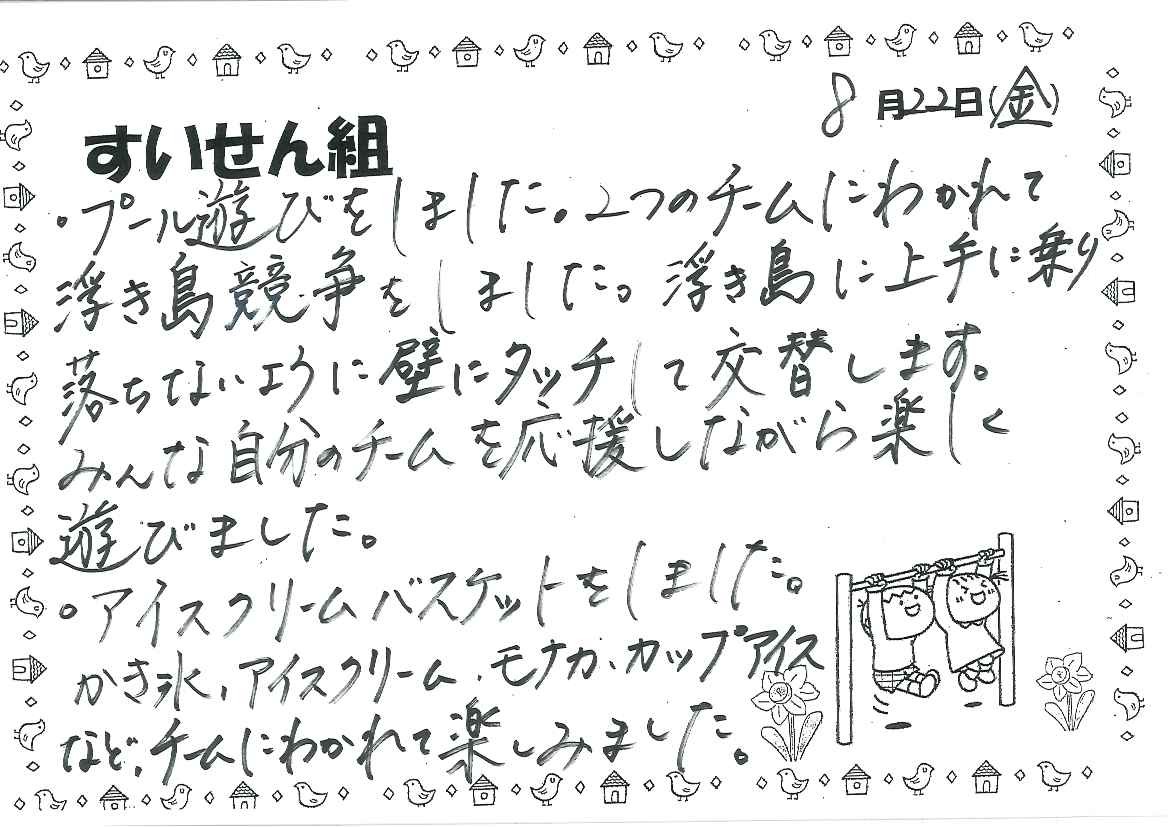 8月22日(金)
すいせん組
・プール遊びをしました。2つのチームにわかれて
浮き島競争をしました。浮き島に上手に乗り
落ちないように壁にタッチして交替します。
みんな自分のチームを応援しながら楽しく
遊びました。
・アイスクリームバスケットをしました。
かき氷、アイスクリーム、モナカ、カップアイス
など、チームにわかれて楽しみました。